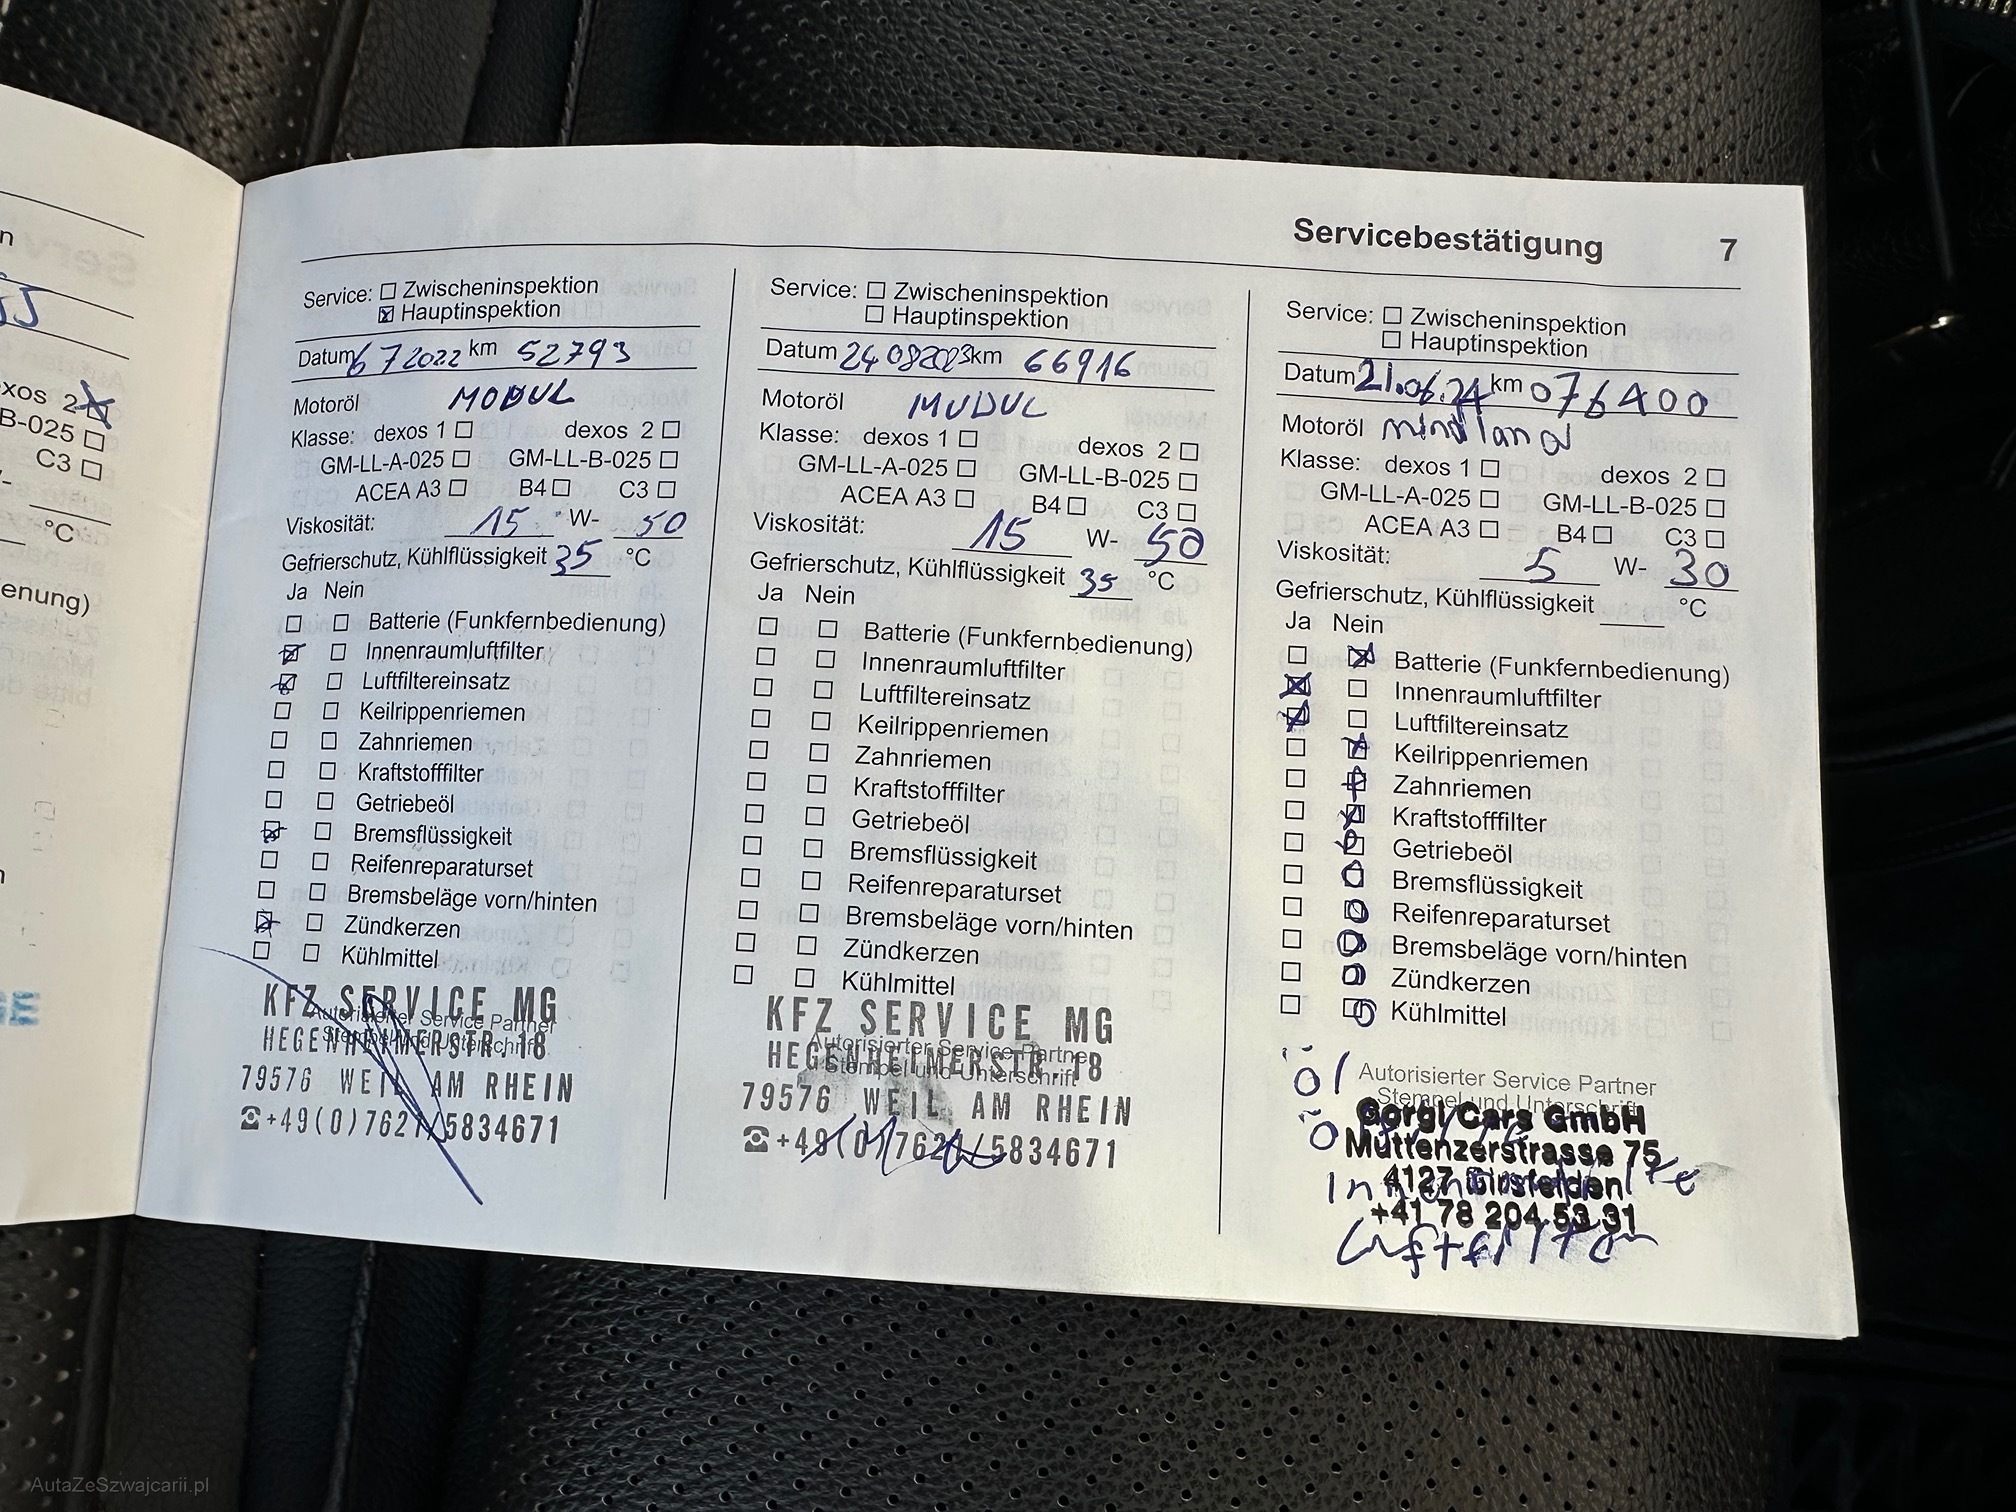 n
xos 2
B-025
C3
°C
enung)
Servicebestätigung 7
Service: Zwischeninspektion
Hauptinspektion
Datum 6 7 2022 km 52793
Motoröl MODUL
Klasse: dexos 1 dexos 2
GM-LL-A-025 GM-LL-B-025
ACEA A3 B4 C3
Viskosität: 15 W- 50
Gefrierschutz, Kühlflüssigkeit 35 °C
Ja Nein
Batterie (Funkfernbedienung)
Innenraumluftfilter
Luftfiltereinsatz
Keilrippenriemen
Zahnriemen
Kraftstofffilter
Getriebeöl
Bremsflüssigkeit
Reifenreparaturset
Bremsbeläge vorn/hinten
Zündkerzen
Kühlmittel
Autorisierter Service Partner
Stempel und Unterschrift
KFZ SERVICE MG
HEGENHEIMERSTR. 18
79576 WEIL AM RHEIN
☎+49(0)7621/5834671
Service: Zwischeninspektion
Hauptinspektion
Datum 24 08 2023 km 66916
Motoröl MUDUL
Klasse: dexos 1 dexos 2
GM-LL-A-025 GM-LL-B-025
ACEA A3 B4 C3
Viskosität: 15 W- 50
Gefrierschutz, Kühlflüssigkeit 35 °C
Ja Nein
Batterie (Funkfernbedienung)
Innenraumluftfilter
Luftfiltereinsatz
Keilrippenriemen
Zahnriemen
Kraftstofffilter
Getriebeöl
Bremsflüssigkeit
Reifenreparaturset
Bremsbeläge vorn/hinten
Zündkerzen
Kühlmittel
Autorisierter Service Partner
Stempel und Unterschrift
KFZ SERVICE MG
HEGENHEIMERSTR. 18
79576 WEIL AM RHEIN
☎+49(0)7621/5834671
Service: Zwischeninspektion
Hauptinspektion
Datum 21.06.24 km 076400
Motoröl mindland
Klasse: dexos 1 dexos 2
GM-LL-A-025 GM-LL-B-025
ACEA A3 B4 C3
Viskosität: 5 W- 30
Gefrierschutz, Kühlflüssigkeit °C
Ja Nein
Batterie (Funkfernbedienung)
Innenraumluftfilter
Luftfiltereinsatz
Keilrippenriemen
Zahnriemen
Kraftstofffilter
Getriebeöl
Bremsflüssigkeit
Reifenreparaturset
Bremsbeläge vorn/hinten
Zündkerzen
Kühlmittel
öl
Autorisierter Service Partner
Stempel und Unterschrift
Gorgi Cars GmbH
Muttenzerstrasse 75
4127 Birsfelden
+41 78 204 53 31
Luftfilter
AutaZeSzwajcarii.pl